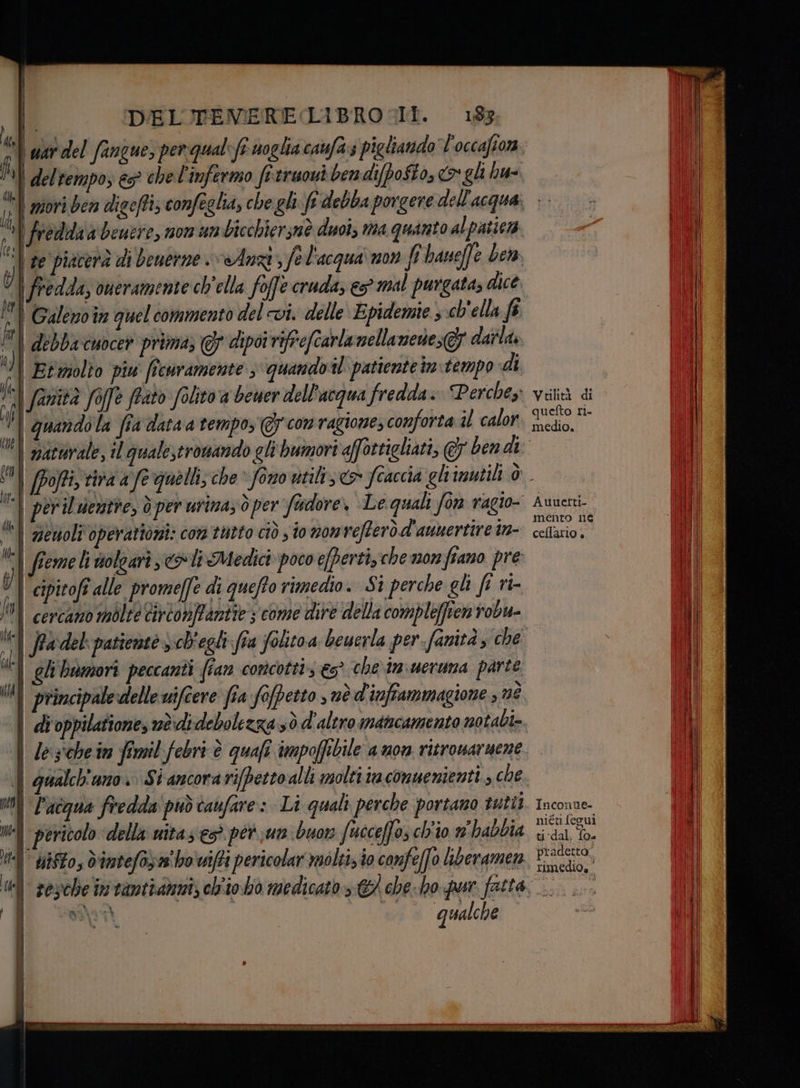 DEL TENERE LIBRO II. 183.
uar del sangue, per qual si uoglia causa; pigliando l'occasion
del tempo, & che l'infermo si truoui ben disposto, & gli hu-
mori ben digesti, conseglia, che gli si debba porgere dell'acqua
fredda a beuere, non un bicchier, nè duoi, ma quanto al patien
te piacerà di beuerne. Anzi, se l'acqua non si hauesse ben
fredda, oueramente ch'ella fosse cruda, & mal purgata, dice
Galeno in quel commento del vi. delle Epidemie, ch'ella si
debba cuocer prima, & dipoi rifrescarla nella neue, & darla.
Et molto piu sicuramente, quando il patiente in tempo di
sanità fosse stato solito a beuer dell'acqua fredda. Perche,
quando la sia data a tempo, & con ragione, conforta il calor
naturale, il quale, trouando gli humori assottigliati, & ben di
sposti, tira a se quelli, che sono utili, & scaccia gli inutili ò
per il uentre, ò per urina, ò per sudore. Le quali son ragio-
neuoli operationi: con tutto ciò, io non resterò d'auuertire in-
sieme li uolgari, & li Medici poco esperti, che non siano pre
cipitosi alle promesse di questo rimedio. Si perche gli si ri-
cercano molte circonstantie; come dire della complession robu-
sta del patiente, ch'egli sia solito a beuerla per sanità, che
gli humori peccanti sian concotti, & che in ueruna parte
principale delle uiscere sia sospetto, nè d'infiammagione, nè
di oppilatione, nè di debolezza, ò d'altro mancamento notabi-
le; che in simil febri è quasi impossibile a non ritrouaruene
qualch'uno. Si ancora rispetto alli molti inconuenienti, che
l'acqua fredda può causare: Li quali perche portano tutti
pericolo della uita, & per un buon successo, ch'io n'habbia
uisto, ò inteso, n'ho uisti pericolar molti, io confesso liberamen
te, che in tanti anni, ch'io ho medicato, & che ho pur fatta
qualche
Vtilità di
questo ri-
medio.
Auuerti-
mento ne
cessario.
Inconue-
niēti segui
ti dal, so-
pradetto
rimedio,